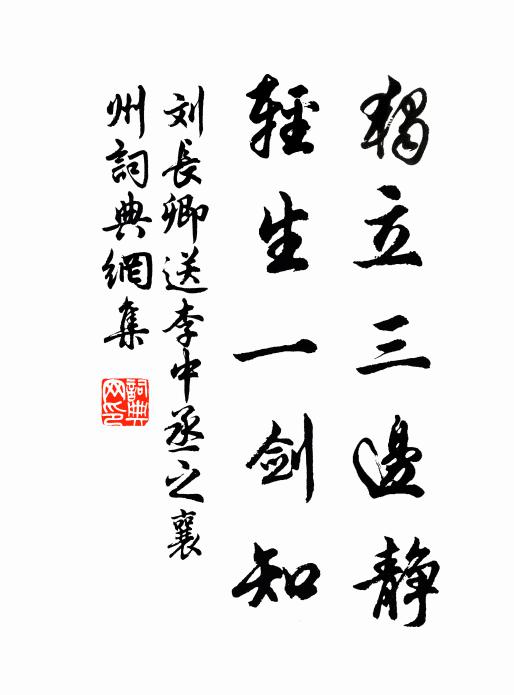 獨立三邊静
輕生一劍知
刘長卿送李中丞之襄
州詞典網集
詞典
网印